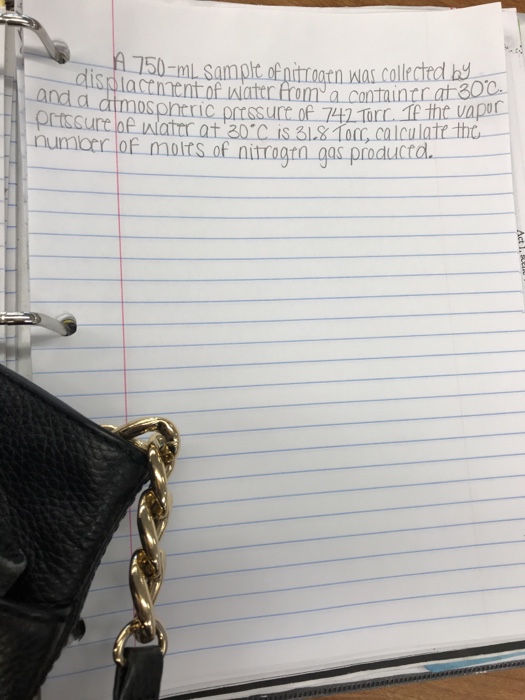 A 750-mL sample of nitrogen was collected by
displacement of water from a container at 30°C.
and a atmospheric pressure of 742 Torr. If the vapor
pressure of water at 30°C is 31.8 Torr, calculate the
number of moles of nitrogen gas produced.
Act 1,